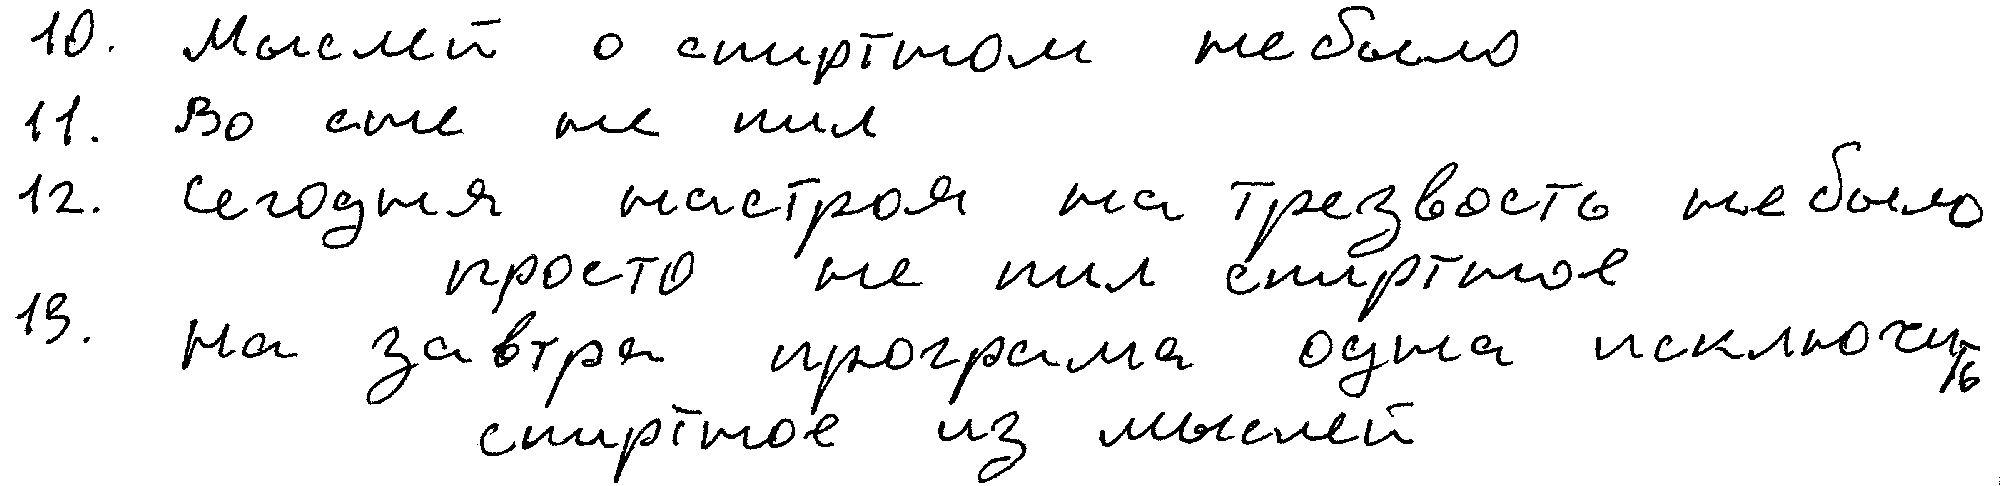 10. Мыслей о спиртном небыло
11. Во сне не пил
12. Сегодня настроя на трезвость небыло
просто не пил спиртное
13. На завтра програма одна исключить
спиртное из мыслей